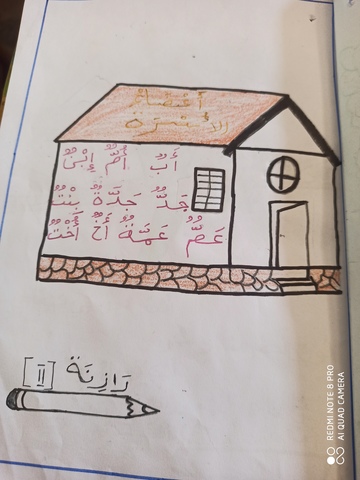 أَعْضَاءُ
الأُسْرَةِ
أَبٌ أُمٌّ إِبْنٌ
جَدٌّ جَدَّةٌ بِنْتٌ
عَمٌّ عَمَّةٌ أَخٌ أُخْتٌ
رَازِنَة [II]
REDMI NOTE 8 PRO
AI QUAD CAMERA